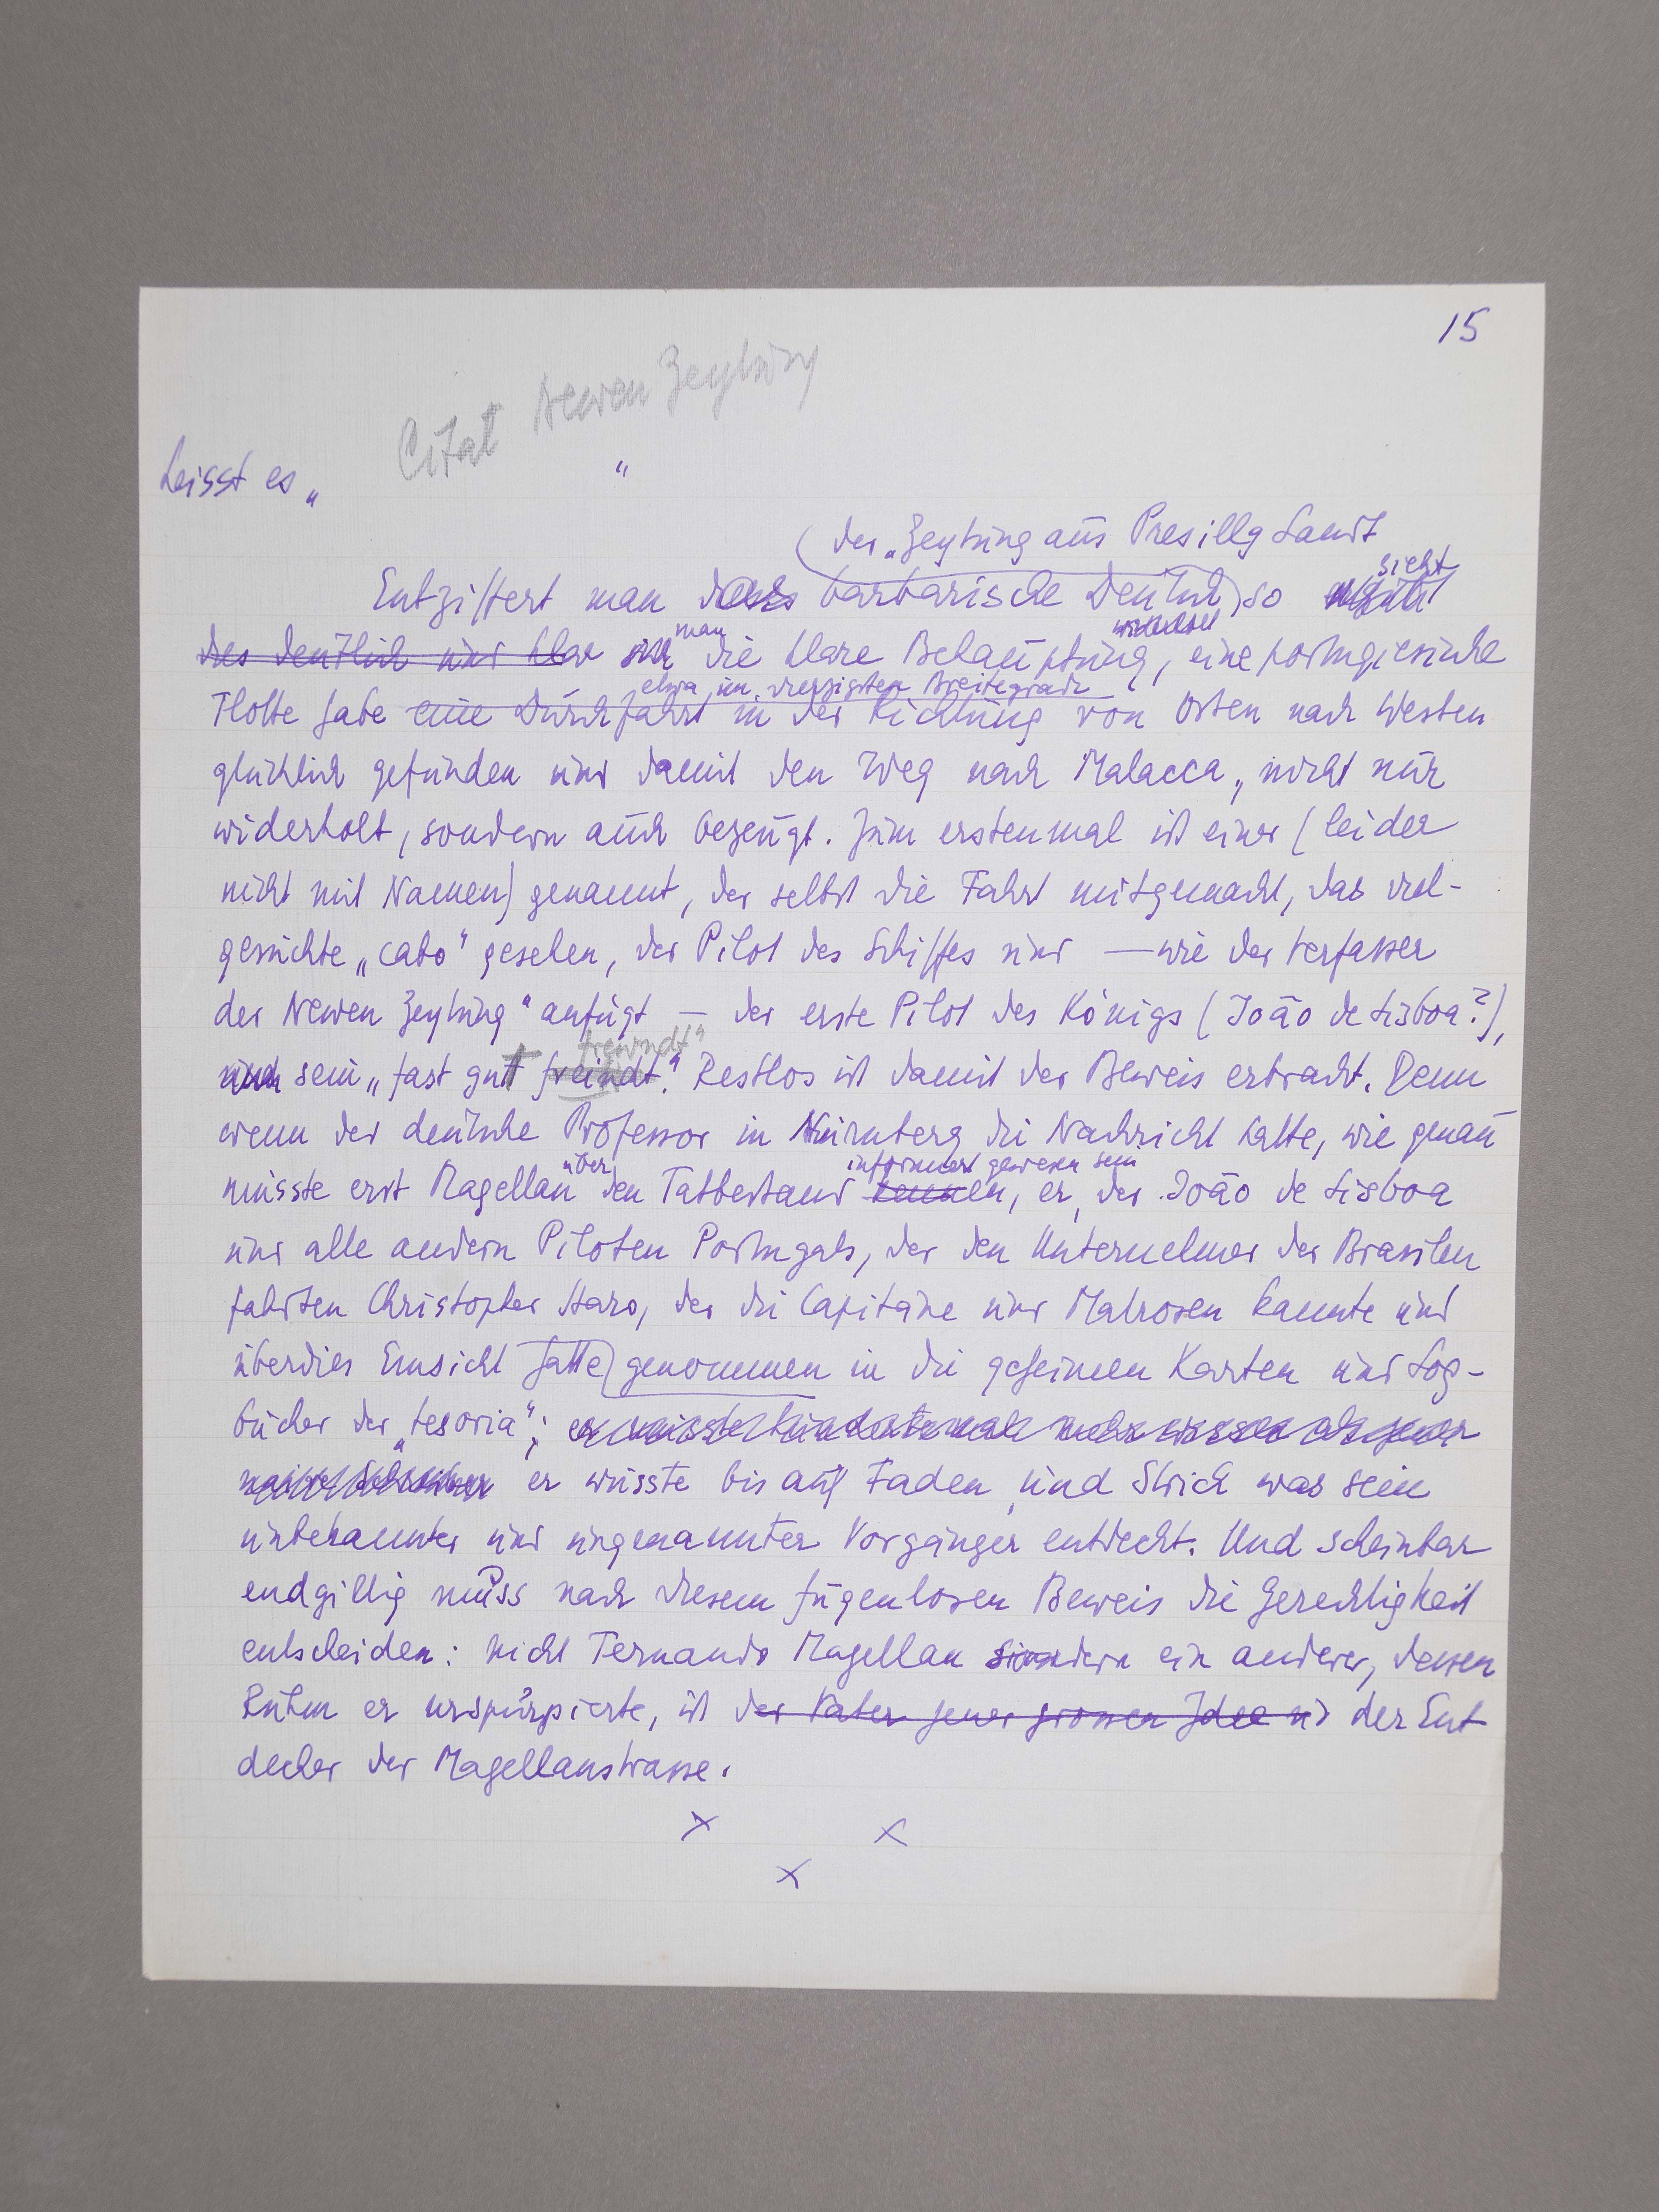 15
Citat Newen Zeytung
heisst es „ "
der „Zeytung aus Presillg Landt
Entziffert man das barbarische Deutsch, so sieht
dies deutlich und klar man die klare Behauptung, eine portugiesische
etwa im vierzigsten Breitegrade
Flotte habe eine Durchfahrt in der Richtung von Osten nach Westen
glücklich gefunden und damit den Weg nach Malacca, nicht nur
widerholt, sondern auch bezeugt. Zum erstenmal ist einer (leider
nicht mit Namen) genannt, der selbst die Fahrt mitgemacht, das viel-
gesuchte „cabo" gesehen, der Pilot des Schiffes und — wie der Verfasser
der Newen Zeytung" anfügt — der erste Pilot des Königs (João de Lisboa?),
frewndt"
sein „fast gut freindt". Restlos ist damit der Beweis erbracht. Denn
wenn der deutsche Professor in Nürnberg die Nachricht hatte, wie genau
über informiert gewesen sein
müsste erst Magellan den Tatbestand kennen, er, der João de Lisboa
und alle andern Piloten Portugals, der den Unternehmer der Brasilen
fahrten Christopher Haro, der die Capitäne und Matrosen kannte und
überdies Einsicht hatte genommen in die geheimen Karten und Log-
bücher der „tesoria"; er wusste hundertemale mehr wissen als jener
er wusste bis auf Faden und Strich was sein
unbekannter und ungenannter Vorgänger entdeckt. Und scheinbar
endgiltig muss nach diesem fugenlosen Beweis die Gerechtigkeit
entscheiden: nicht Fernando Magellan sondern ein anderer, dessen
Ruhm er urspurpierte, ist der Vater jener grossen Idee u der Ent
decker der Magellanstrasse.
x x
x